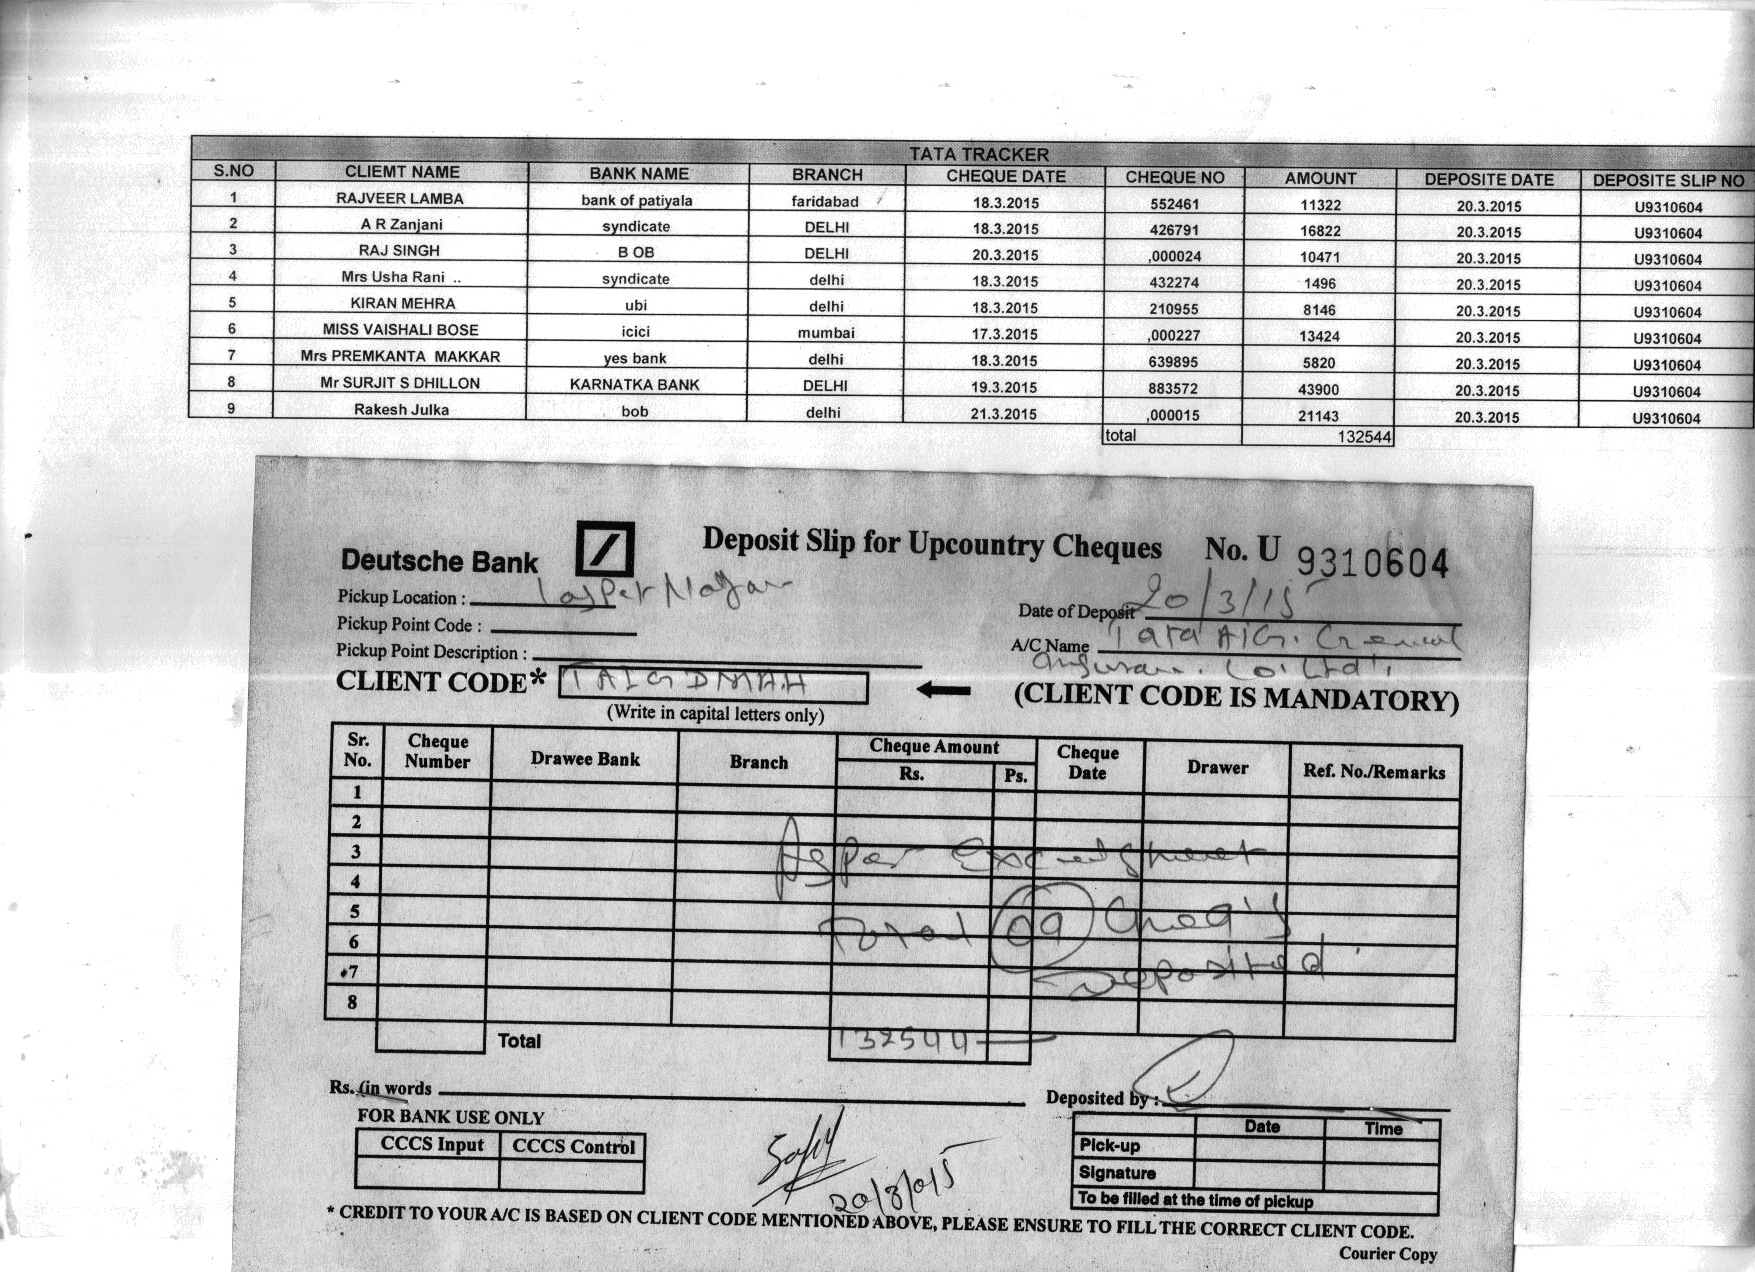 TATA TRACKER
S.NO CLIEMT NAME BANK NAME BRANCH CHEQUE DATE CHEQUE NO AMOUNT DEPOSITE DATE DEPOSITE SLIP NO
1 RAJVEER LAMBA bank of patiyala faridabad 18.3.2015 552461 11322 20.3.2015 U9310604
2 A R Zanjani syndicate DELHI 18.3.2015 426791 16822 20.3.2015 U9310604
3 RAJ SINGH B OB DELHI 20.3.2015 ,000024 10471 20.3.2015 U9310604
4 Mrs Usha Rani .. syndicate delhi 18.3.2015 432274 1496 20.3.2015 U9310604
5 KIRAN MEHRA ubi delhi 18.3.2015 210955 8146 20.3.2015 U9310604
6 MISS VAISHALI BOSE icici mumbai 17.3.2015 ,000227 13424 20.3.2015 U9310604
7 Mrs PREMKANTA MAKKAR yes bank delhi 18.3.2015 639895 5820 20.3.2015 U9310604
8 Mr SURJIT S DHILLON KARNATKA BANK DELHI 19.3.2015 883572 43900 20.3.2015 U9310604
9 Rakesh Julka bob delhi 21.3.2015 ,000015 21143 20.3.2015 U9310604
total 132544
Deutsche Bank Deposit Slip for Upcountry Cheques No. U 9310604
Pickup Location : Date of Deposit 20/3/15
Pickup Point Code :
A/C Name Tata AIG.
Pickup Point Description : Co. Ltd.
CLIENT CODE* TAIGDMAH (CLIENT CODE IS MANDATORY)
(Write in capital letters only)
Sr. No. Cheque Number Drawee Bank Branch Cheque Amount Rs. Ps. Cheque Date Drawer Ref. No./Remarks
1
2
3 As per
4
5 Total 09 Cheq's
6
7 Deposited
8
Total 132544
Rs. (in words Deposited by :
FOR BANK USE ONLY
CCCS Input CCCS Control
Date Time
Pick-up
Signature
To be filled at the time of pickup
20/3/015
* CREDIT TO YOUR A/C IS BASED ON CLIENT CODE MENTIONED ABOVE, PLEASE ENSURE TO FILL THE CORRECT CLIENT CODE.
Courier Copy